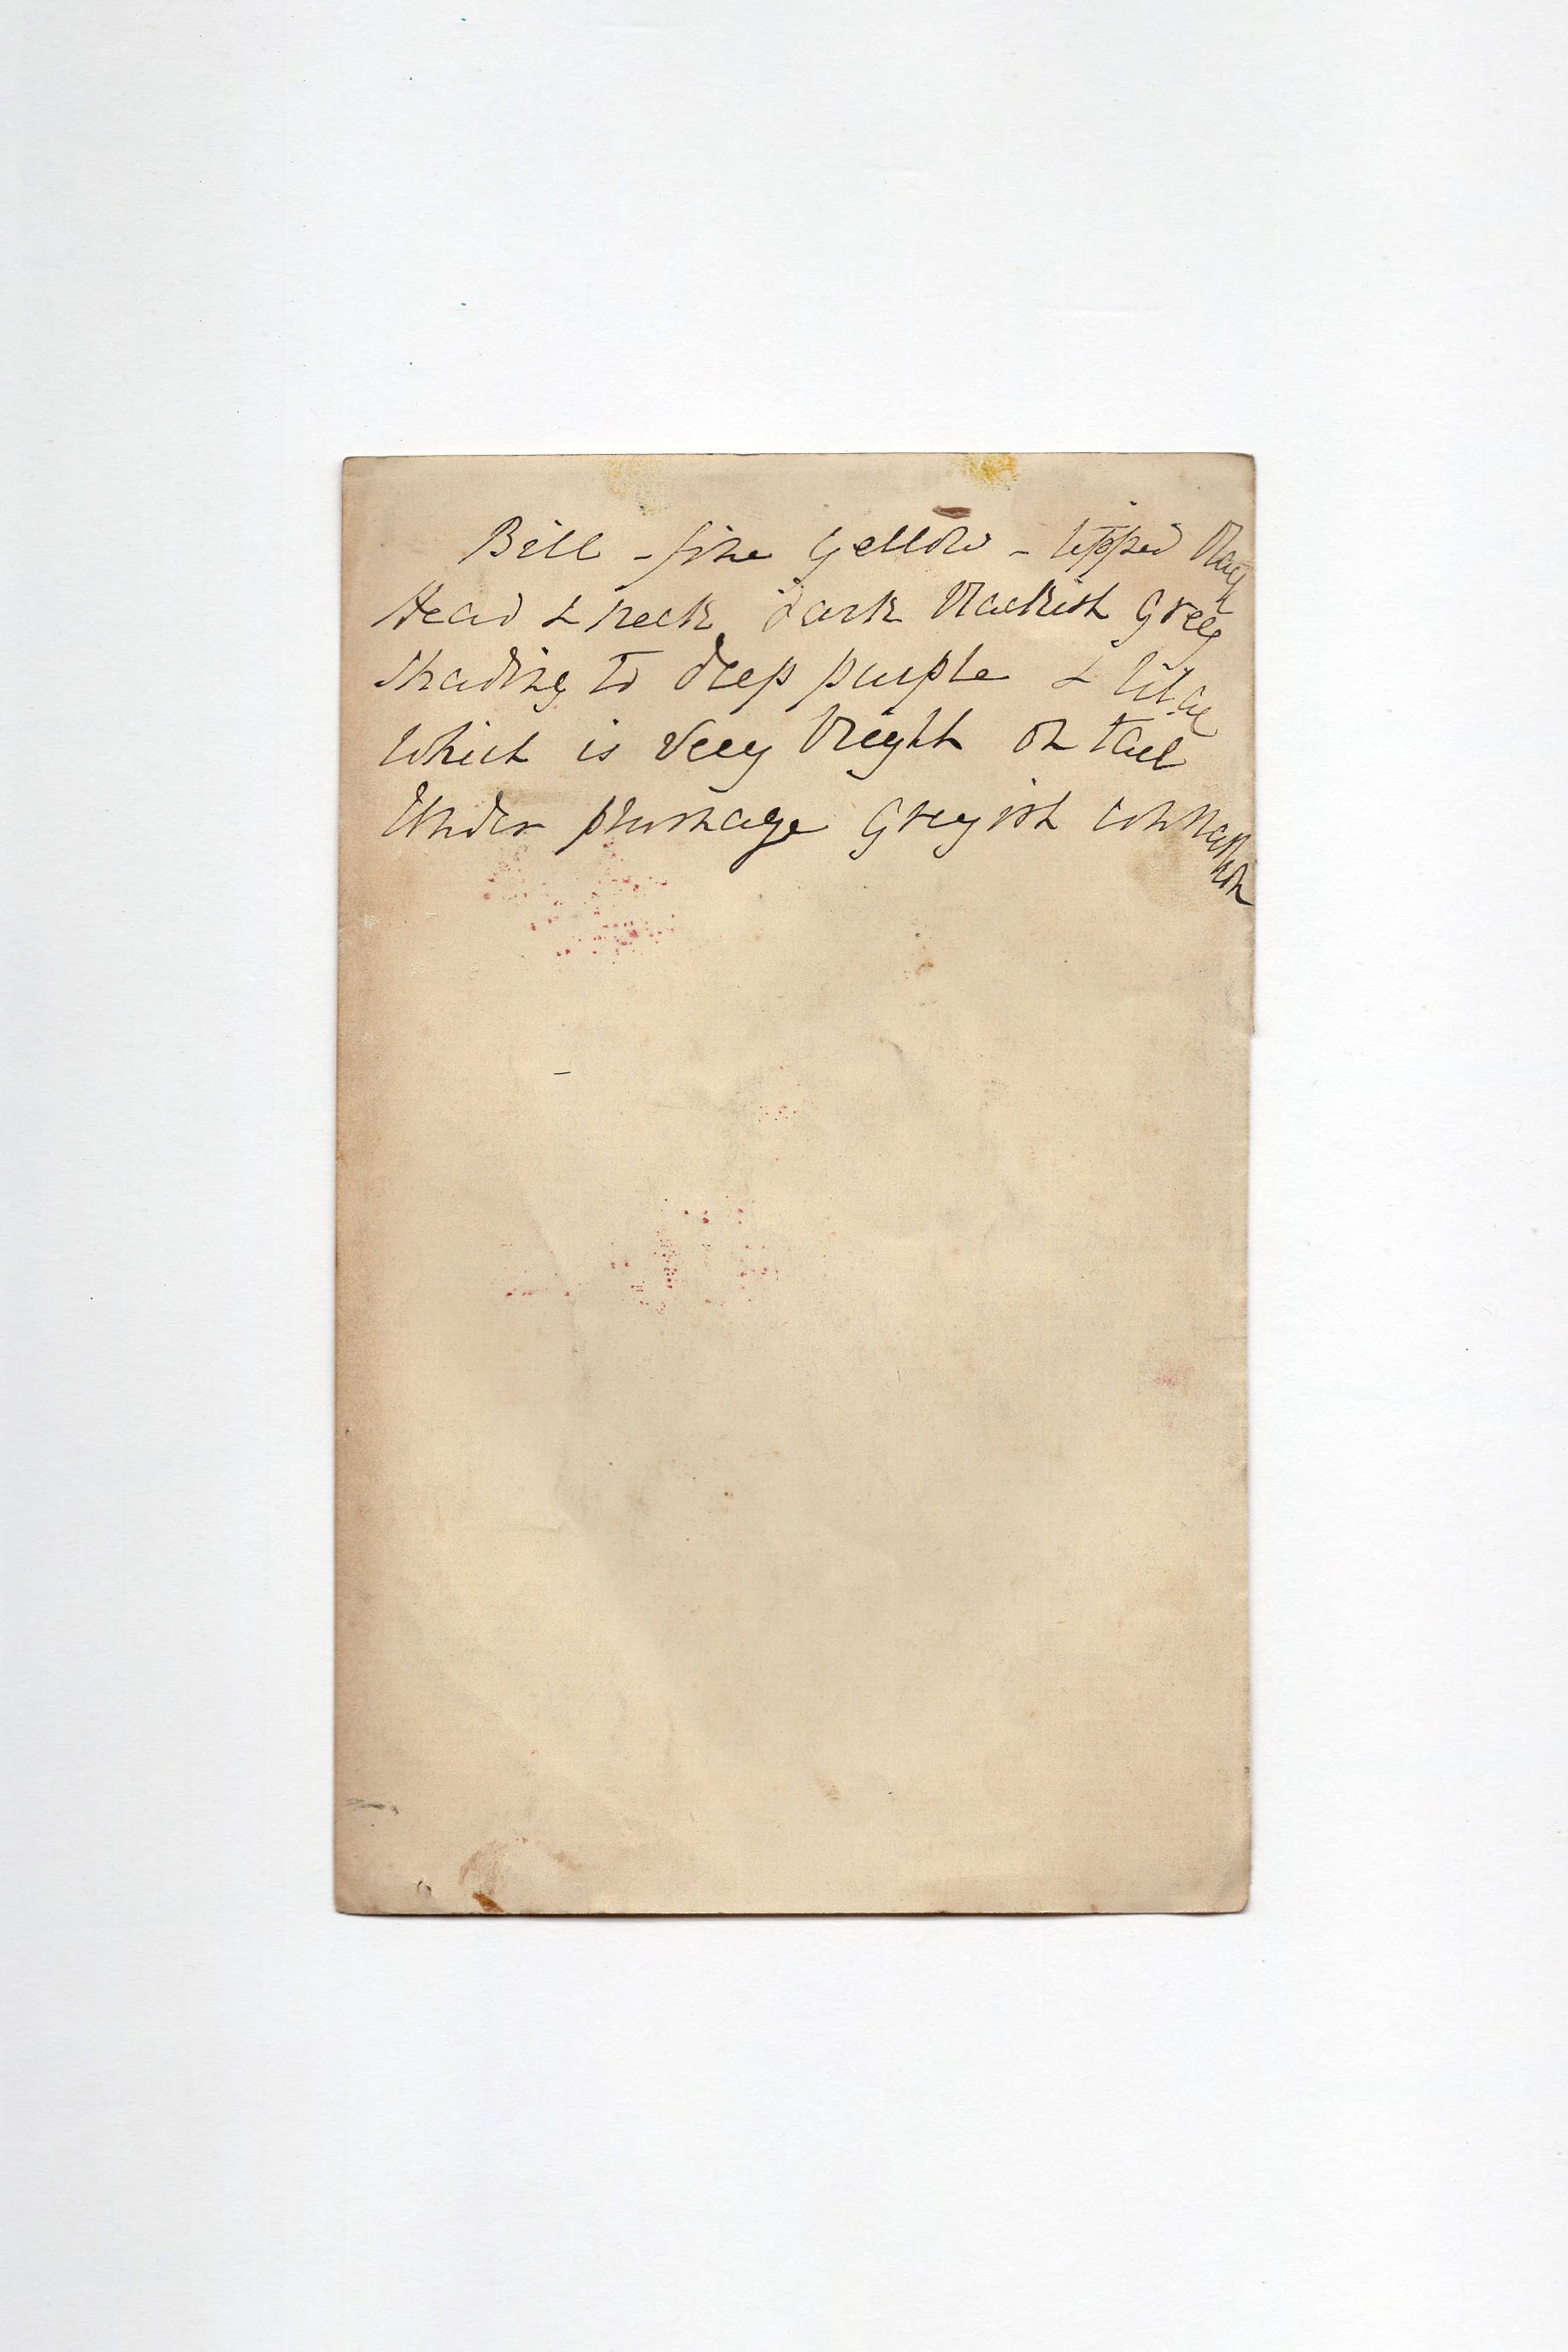 Bill - fine yellow - tipped black
Head & neck dark blackish green
shading to deep purple & lilac
which is very bright on tail
Under plumage greyish cinnamon